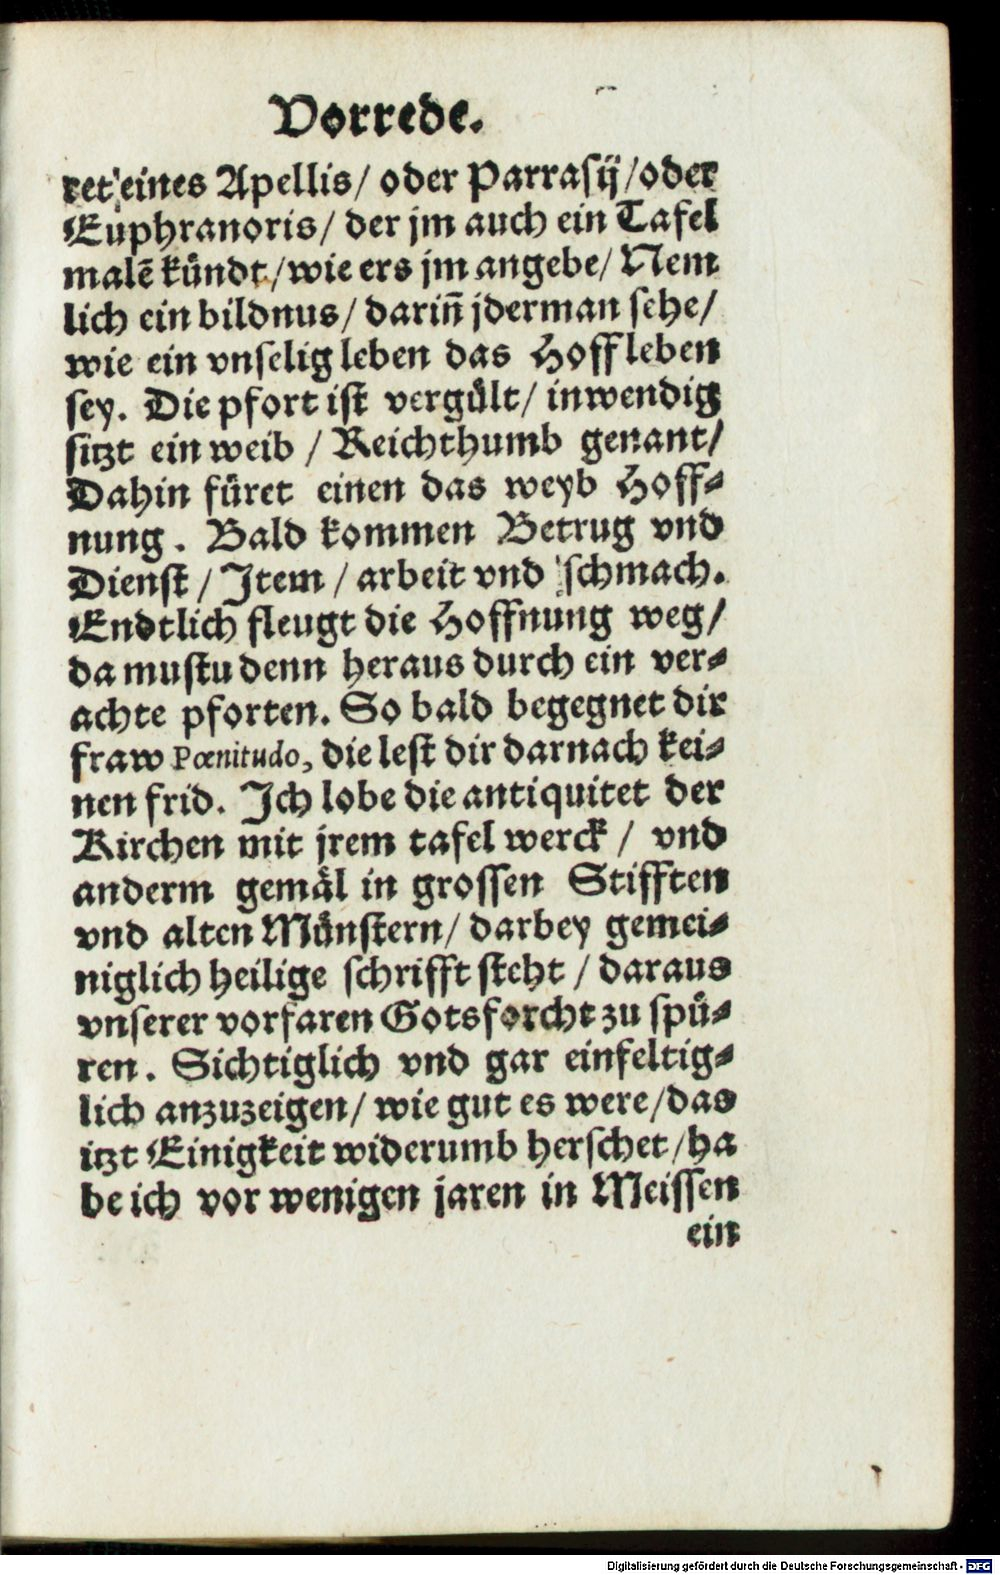 Vorrede.
ret eines Apellis/ oder Parrasij/oder
Euphranoris/ der jm auch ein Tafel
malē kündt/wie ers jm angebe/ Nem
lich ein bildnus/ dariñ jderman sehe/
wie ein vnselig leben das Hoffleben
sey. Die pfort ist vergült/ inwendig
sitzt ein weib / Reichthumb genant/
Dahin füret einen das weyb Hoff-
nung. Bald kommen Betrug vnd
Dienst / Item / arbeit vnd schmach.
Endtlich fleugt die Hoffnung weg/
da mustu denn heraus durch ein ver-
achte pforten. So bald begegnet dir
fraw Pœnitudo, die lest dir darnach kei-
nen frid. Ich lobe die antiquitet der
Kirchen mit jrem tafel werck / vnd
anderm gemäl in grossen Stifften
vnd alten Münstern/ darbey gemei-
niglich heilige schrifft steht / daraus
vnserer vorfaren Gotsforcht zu spü-
ren. Sichtiglich vnd gar einfeltig-
lich anzuzeigen/ wie gut es were/das
itzt Einigkeit widerumb herschet/ha
be ich vor wenigen jaren in Meissen
ein
Digitalisierung gefördert durch die Deutsche Forschungsgemeinschaft - DFG